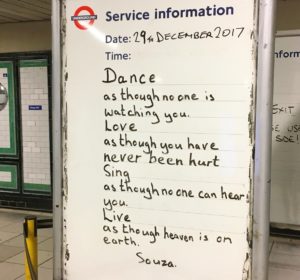 UNDERGROUND
Service information
Date: 29th DECEMBER 2017
Time:
Dance
as though no one is
watching you.
Love
as though you have
never been hurt
Sing
as though no one can hear
you.
Live
as though heaven is on
earth.
Souza.
EXIT